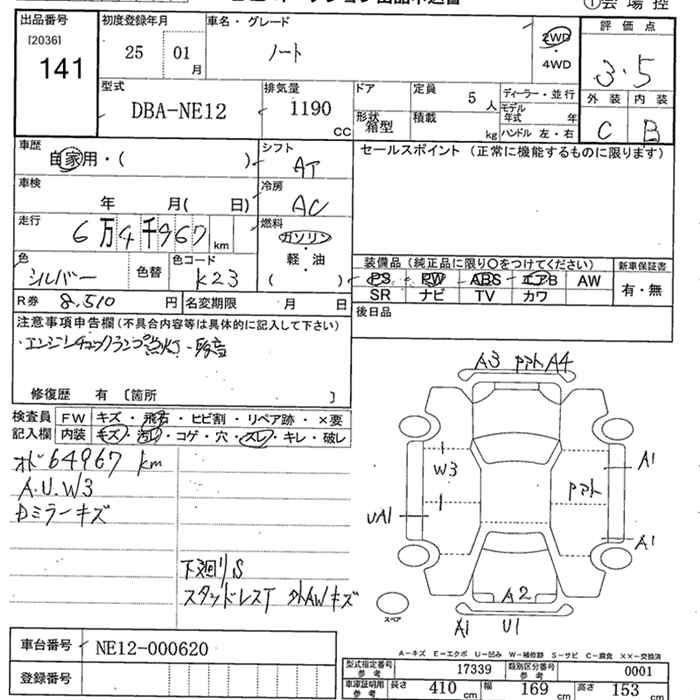 出品番号 [2036] 141
初度登録年月 25 01 月
車名・グレード ノート
2WD ・ 4WD
評価点 3.5
外装 C 内装 B
型式 DBA-NE12
排気量 1190 CC
ドア
定員 5 人
形状 箱型
積載 kg
ディーラー・並行
モデル年式 年
ハンドル 左・右
車歴 自家用・( )
シフト AT
セールスポイント (正常に機能するものに限ります)
車検 年 月( 日)
冷房 AC
走行 6万4千967 km
燃料 ガソリン ・ 軽・油 ( )
色 シルバー 色替 色コード K23
装備品 (純正品に限り○をつけてください) 新車保証書
PS PW ABS エアB AW 有・無
SR ナビ TV カワ
R券 8,510 円 名変期限 月 日
後日品
注意事項申告欄 (不具合内容等は具体的に記入して下さい)
・エンジンチェックランプ点灯
修復歴 有 〔箇所 〕
検査員記入欄 FW キズ・飛石・ヒビ割・リペア跡・×要
内装 キズ・汚れ・コゲ・穴・スレ・キレ・破レ
オド64967 km
A.U.W3
Dミラーキズ
下廻りS
スタッドレスT 外AWキズ
A3 A4
W3
A1
UA1
A1
A2
A1 U1
スペア
車台番号 NE12-000620
登録番号
A-キズ E-エクボ U-凹み W-補修跡 S-サビ C-腐食 XX-交換済
型式指定番号 参考 17339 類別区分番号 参考 0001
車庫証明用 参考 長さ 410 cm 幅 169 cm 高さ 153 cm